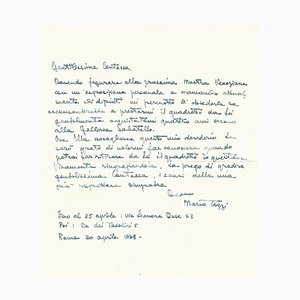 Gentilissima Contessa,
Dovendo figurare alla prossima Mostra Veneziana
con un'esposizione personale e mancando attual
mente di dipinti mi permetto di chiederle se
acconsentirebbe a prestarmi il quadretto da Lei
gentilmente acquistatomi quattro anni orsono
alla Galleria Sabatello.
Se Ella accogliesse questo mio desiderio Le
sarei grato di volermi far conoscere quando
potrei far ritirare da Lei il quadretto in questione.
Vivamente ringraziandola, La prego di gradire
gentilissima Contessa, i sensi della mia
più rispettosa simpatia
Mario Tozzi
Fino al 25 aprile : Via Eleonora Duse 23
Poi : Via dei
Roma 20 aprile